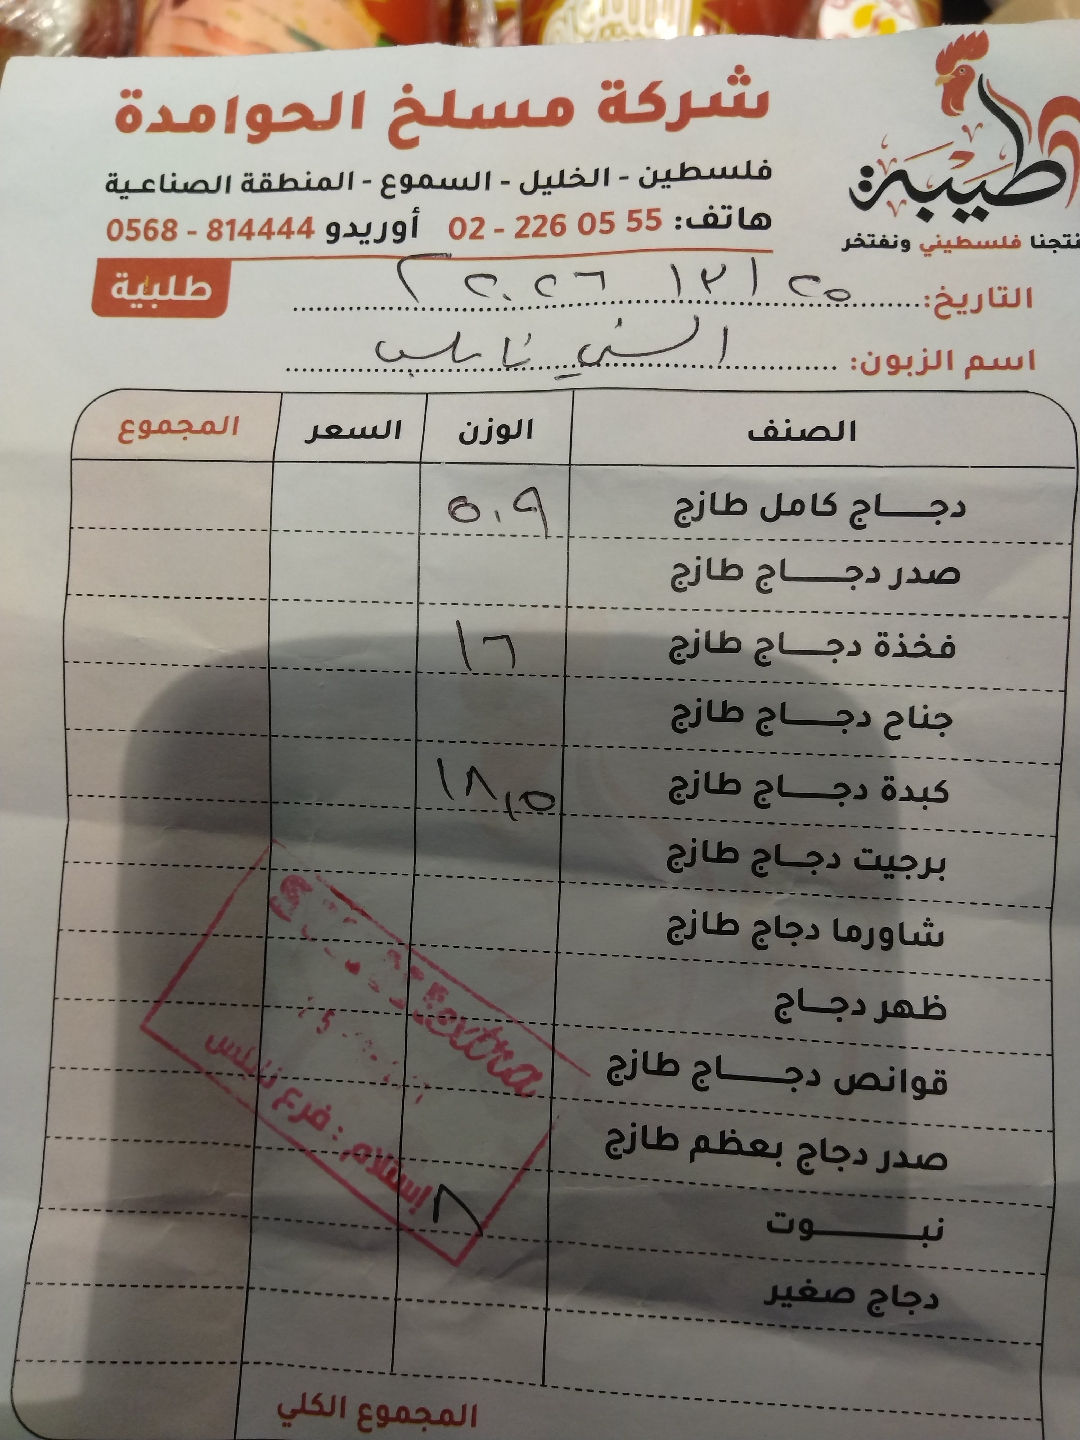 شركة مسلخ الحوامدة
فلسطين - الخليل - السموع - المنطقة الصناعية
هاتف: 02 - 226 05 55 أوريدو 0568 - 814444
طيبة
نتجنا فلسطيني ونفتخر
طلبية
التاريخ: ٢٠٢٦
اسم الزبون: السني نابلس
الصنف الوزن السعر المجموع
دجــــاج كامل طازج ٥٠٩
صدر دجــــاج طازج
فخذة دجــــاج طازج ١٦
جناح دجــــاج طازج
كبدة دجــــاج طازج ١٨,٥
برجيت دجــاج طازج
شاورما دجاج طازج
ظهر دجــاج
قوانص دجــــاج طازج
صدر دجاج بعظم طازج
نبــــــوت ٨
دجاج صغير
المجموع الكلي
Extra
إستلام : فرع نابلس